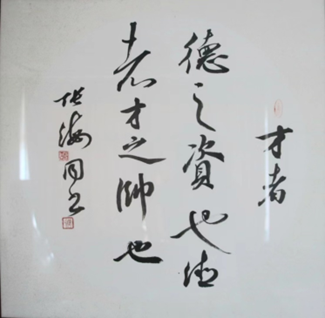 才者
德之資也德
者才之帥也
张海